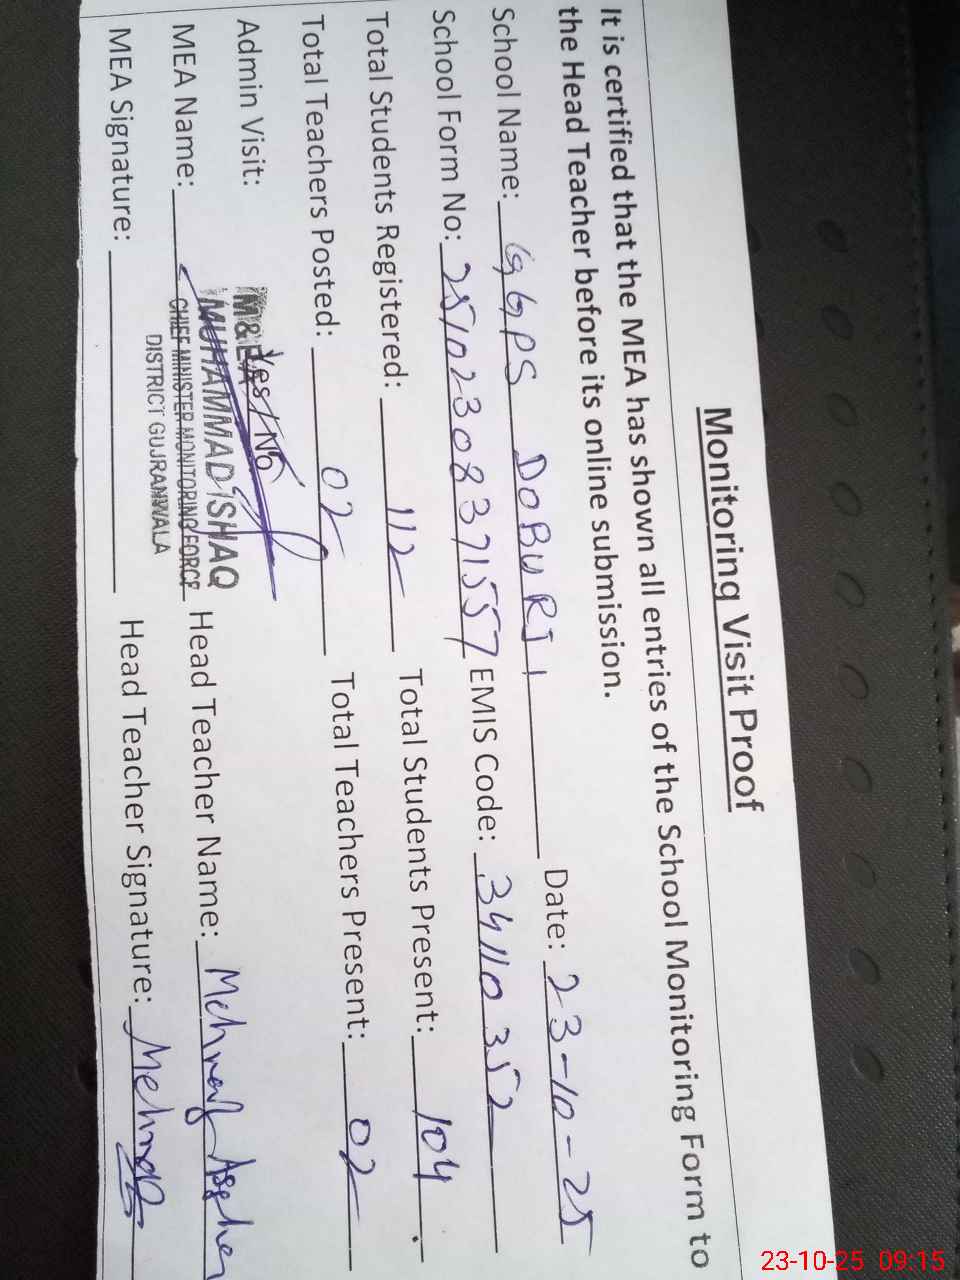 Monitoring Visit Proof
It is certified that the MEA has shown all entries of the School Monitoring Form to
the Head Teacher before its online submission.
School Name: GGPS DOBURJI Date: 23-10-25
School Form No: 25102308371557 EMIS Code: 34110352
Total Students Registered: 112 Total Students Present: 104
Total Teachers Posted: 02 Total Teachers Present: 02
Admin Visit: Yes / No
M & EA
MUHAMMAD ISHAQ
CHIEF MINISTER MONITORING FORCE
DISTRICT GUJRANWALA
MEA Name: Head Teacher Name: Asgher
MEA Signature: Head Teacher Signature:
23-10-25 09:15